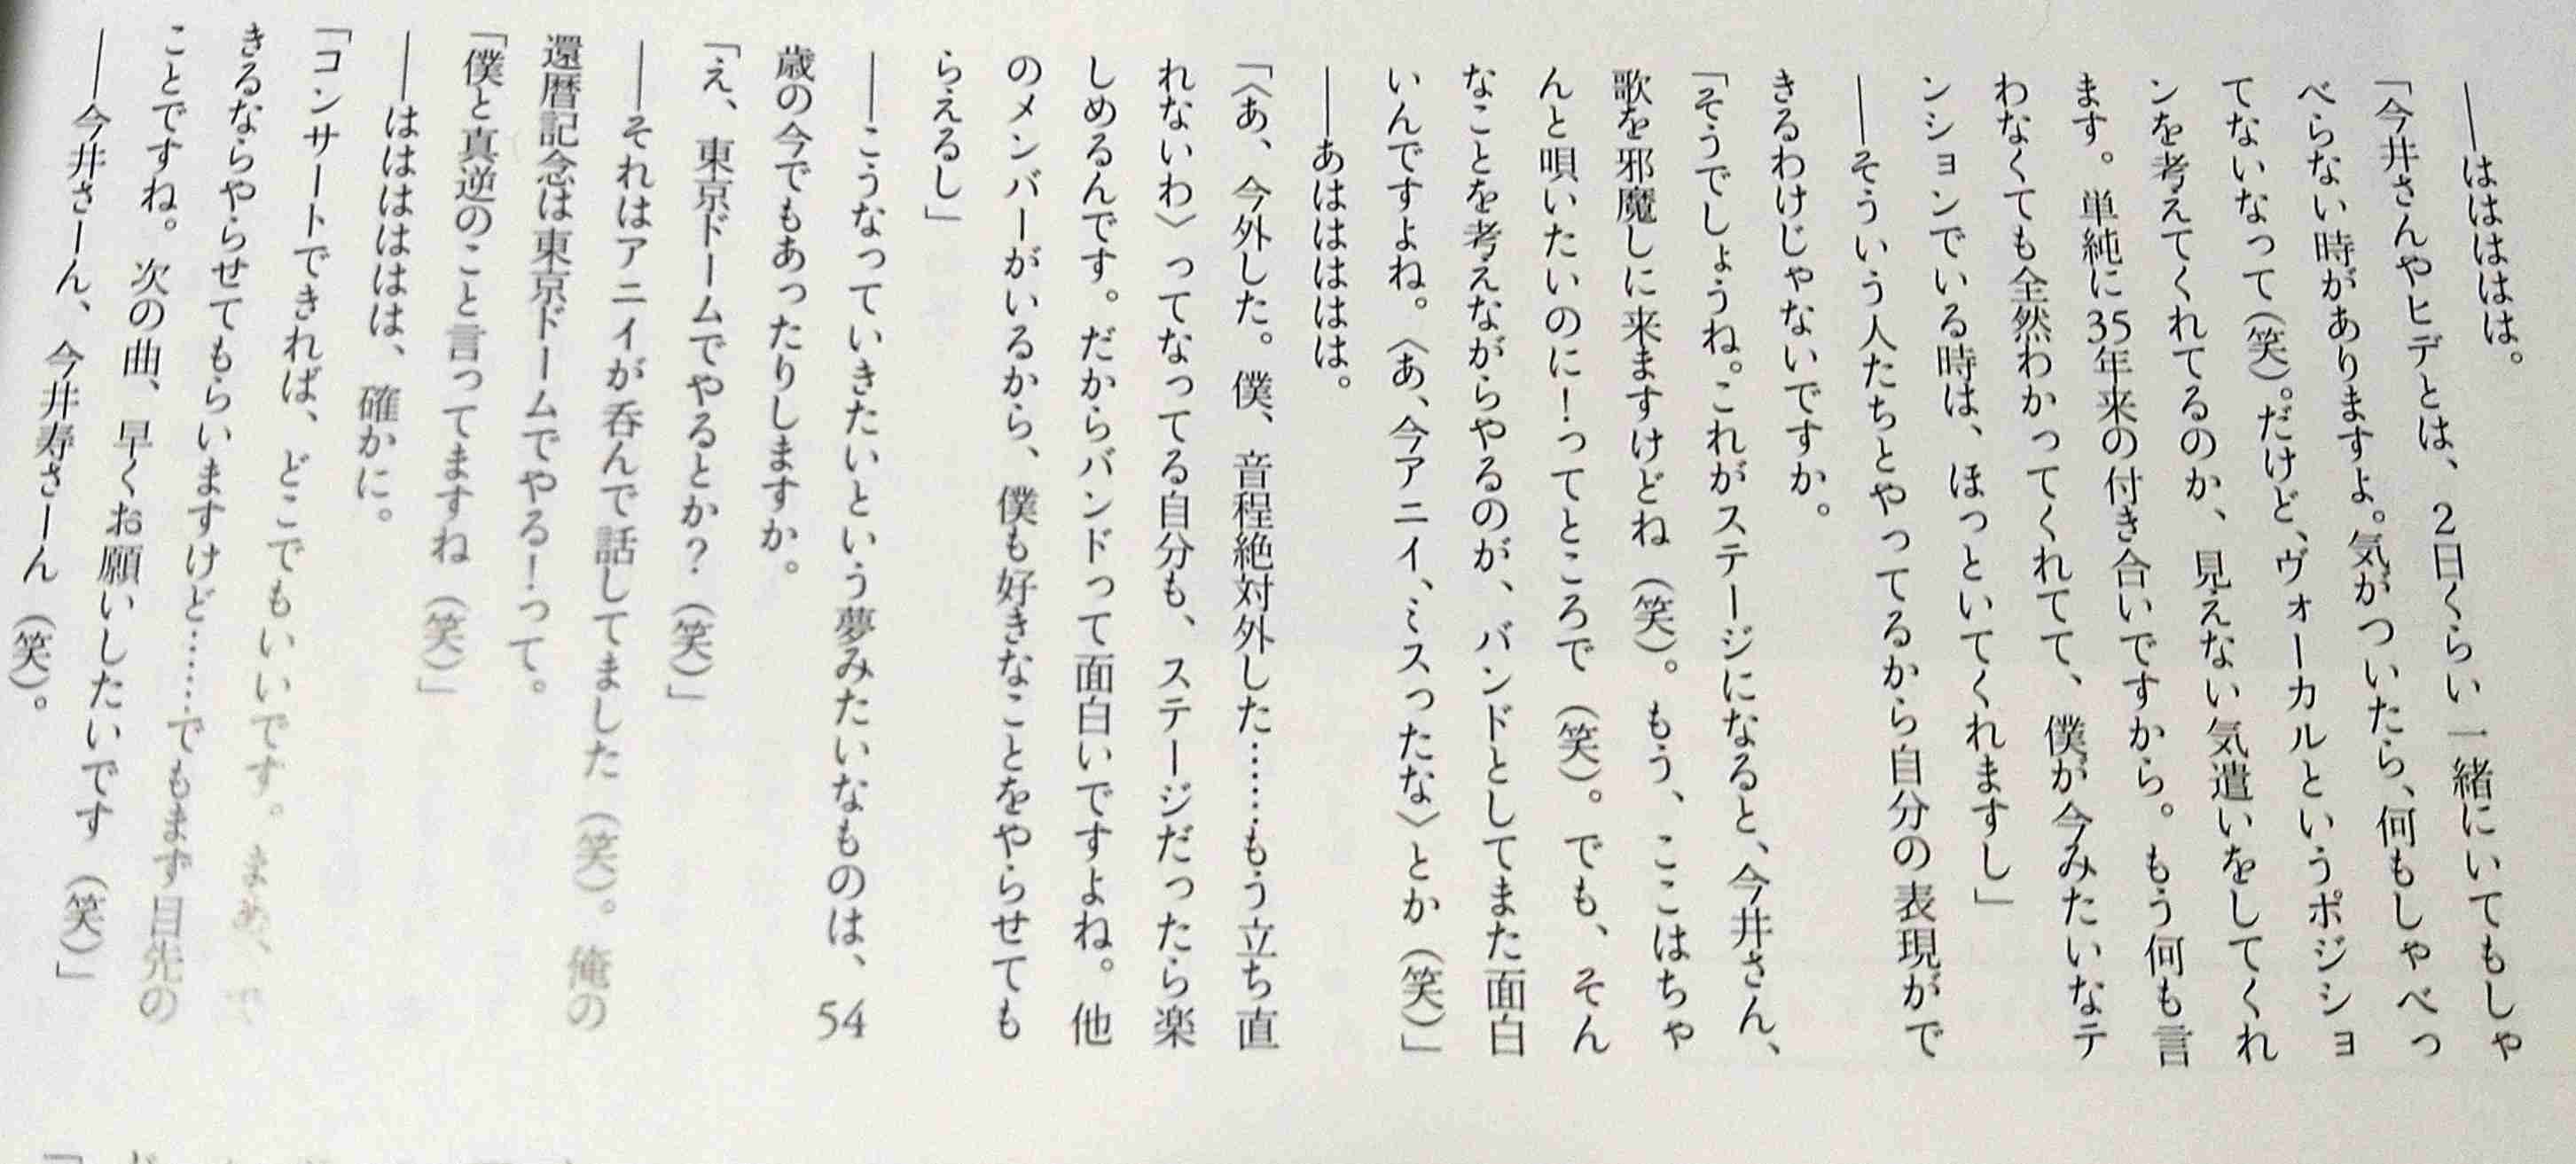 ――はははははは。
「今井さんやヒデとは、2日くらい一緒にいてもしゃ
べらない時がありますよ。気がついたら、何もしゃべっ
てないなって(笑)。だけど、ヴォーカルというポジショ
ンを考えてくれてるのか、見えない気遣いをしてくれ
ます。単純に35年来の付き合いですから。もう何も言
わなくても全然わかってくれてて、僕が今みたいなテ
ンションでいる時は、ほっといてくれますし」
――そういう人たちとやってるから自分の表現がで
きるわけじゃないですか。
「そうでしょうね。これがステージになると、今井さん、
歌を邪魔しに来ますけどね(笑)。もう、ここはちゃ
んと唄いたいのに!ってところで(笑)。でも、そん
なことを考えながらやるのが、バンドとしてまた面白
いんですよね。〈あ、今アニイ、ミスったな〉とか(笑)」
――あはははははは。
「〈あ、今外した。僕、音程絶対外した……もう立ち直
れないわ〉ってなってる自分も、ステージだったら楽
しめるんです。だからバンドって面白いですよね。他
のメンバーがいるから、僕も好きなことをやらせても
らえるし」
――こうなっていきたいという夢みたいなものは、54
歳の今でもあったりしますか。
「え、東京ドームでやるとか?(笑)」
――それはアニイが呑んで話してました(笑)。俺の
還暦記念は東京ドームでやる!って。
「僕と真逆のこと言ってますね(笑)」
――ははははははは、確かに。
「コンサートできれば、どこでもいいです。まあ、で
きるならやらせてもらいますけど……でもまず目先の
ことですね。次の曲、早くお願いしたいです(笑)」
――今井さーん、今井寿さーん(笑)。